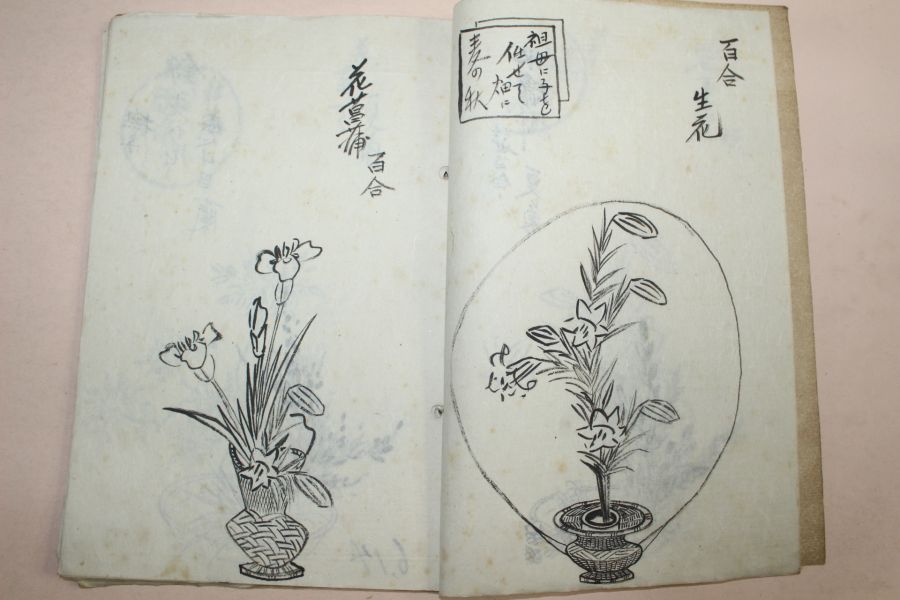 百合
生花
祖母に子を
任せて
畑に
麦の秋
花菖蒲
百合
6.14